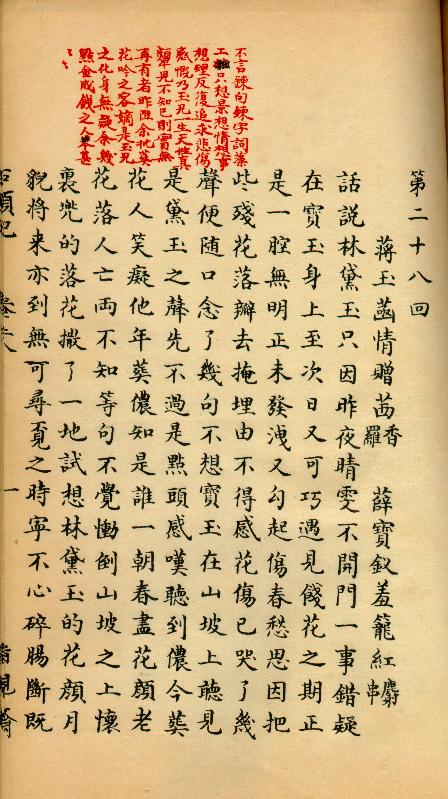 不言鍊句鍊字詞藻
工拙只想景想情想事
想理反復追求悲傷
感慨乃玉兄一生天性真
顰兒不知己則實無
再有者昨阻余批葬
花吟之客嫡是玉兄
之化身無疑余幾
點金成錢之人笨甚
第二十八回
蔣玉菡情贈茜香羅 薛寶釵羞籠紅麝串
話說林黛玉只因昨夜晴雯不開門一事錯疑
在寶玉身上至次日又可巧遇見餞花之期正
是一腔無明正未發洩又勾起傷春愁思因把
些殘花落瓣去掩埋由不得感花傷已哭了幾
聲便随口念了幾句不想寶玉在山坡上聽見
是黛玉之聲先不過是點頭感嘆聽到儂今葬
花人笑癡他年葬儂知是誰一朝春盡花顏老
花落人亡兩不知等句不覺慟倒山坡之上懷
裏兜的落花撒了一地試想林黛玉的花顏月
貌將來亦到無可尋覓之時寧不心碎腸斷既